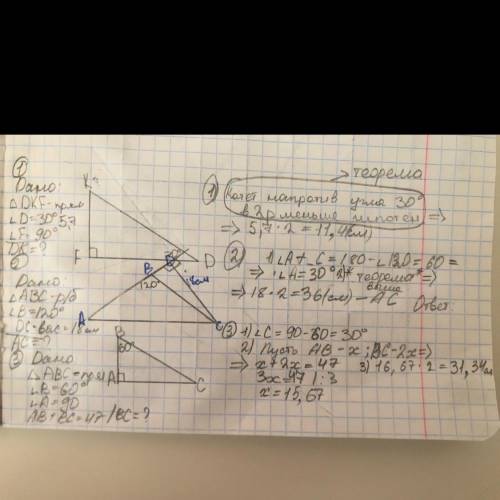 ①
Дано:
△DKF-прям
∠D=30° 5,7
∠F=90°
DK=?
②
Дано:
△ABC-р/б
∠B=120°
DC-выс=18см
AC=?
③ Дано
△ABC=прям
∠B=60°
∠A=90
AB+BC=47/BC=?
K
F
D
B
120°
A
C
B
60°
A
C
теорема
① Катет напротив угла 30°
в 2р меньше гипотен ⇒
⇒ 5,7·2=11,4(см)
② 1) ∠A+∠C=180-∠120=60=
⇒ ∠A=30° 2)* теорема* ⇒
выше
⇒ 18·2=36(см)-AC Ответ.
③ 1) ∠C=90-60=30°
2) Пусть AB-x; BC-2x⇒
⇒ x+2x=47 3) 15,67·2=31,34см
3x=47 |:3
x=15,67